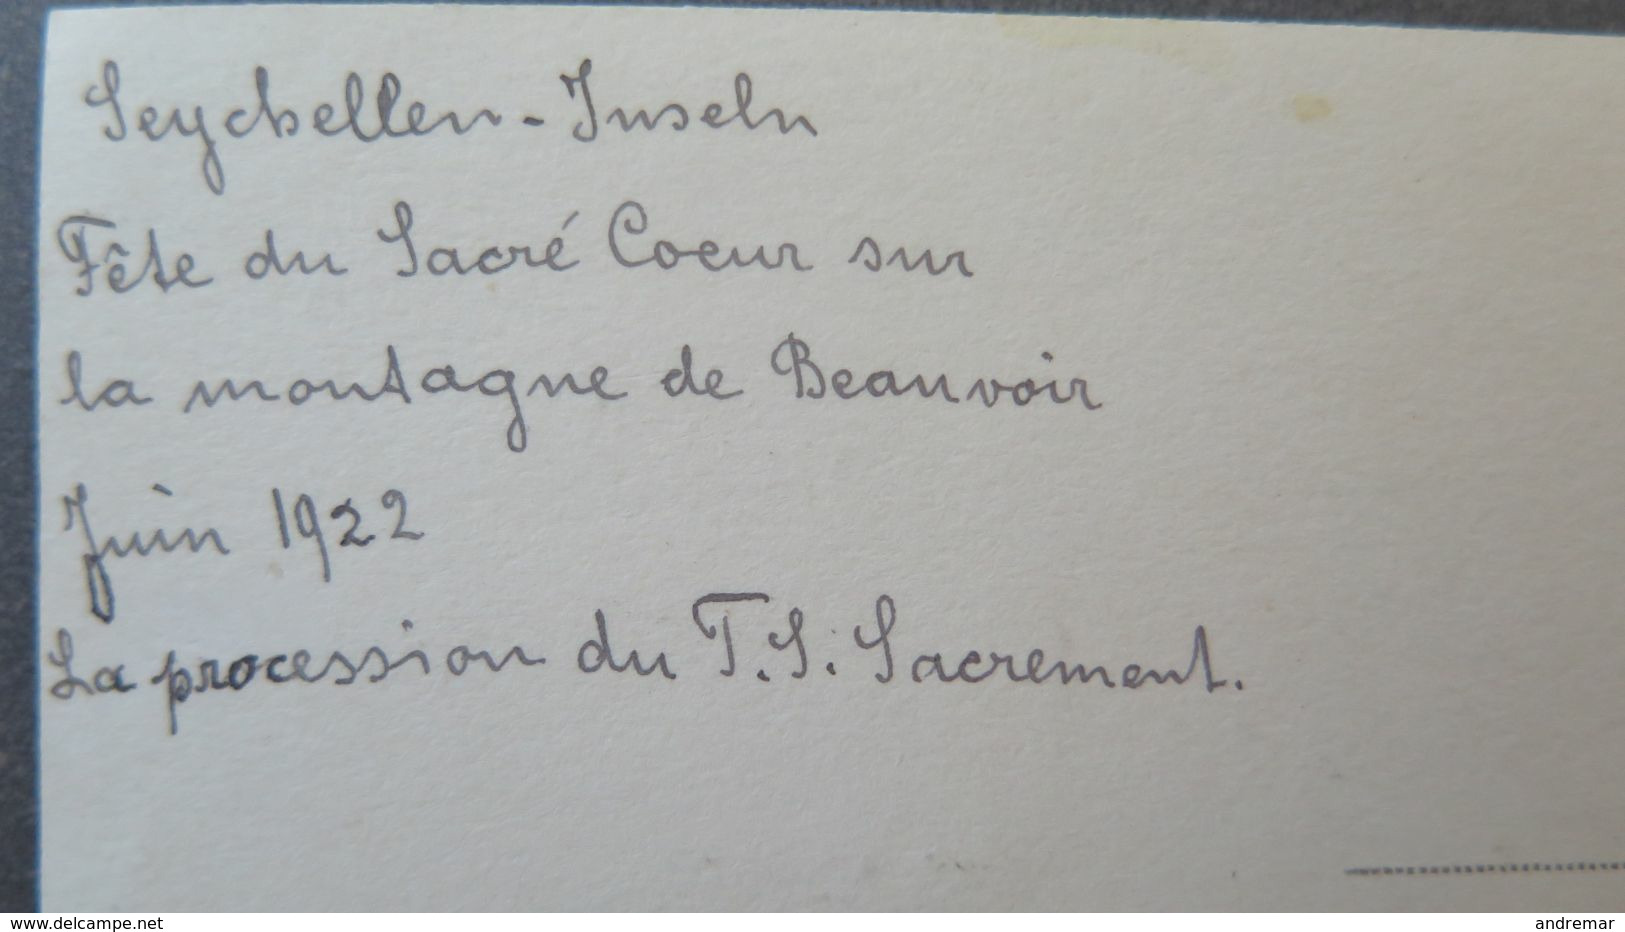 Seychellen-Inseln
Fête du Sacré Coeur sur
la montagne de Beauvoir
Juin 1922
La procession du T.S. Sacrement.
www.delcampe.net
andremar